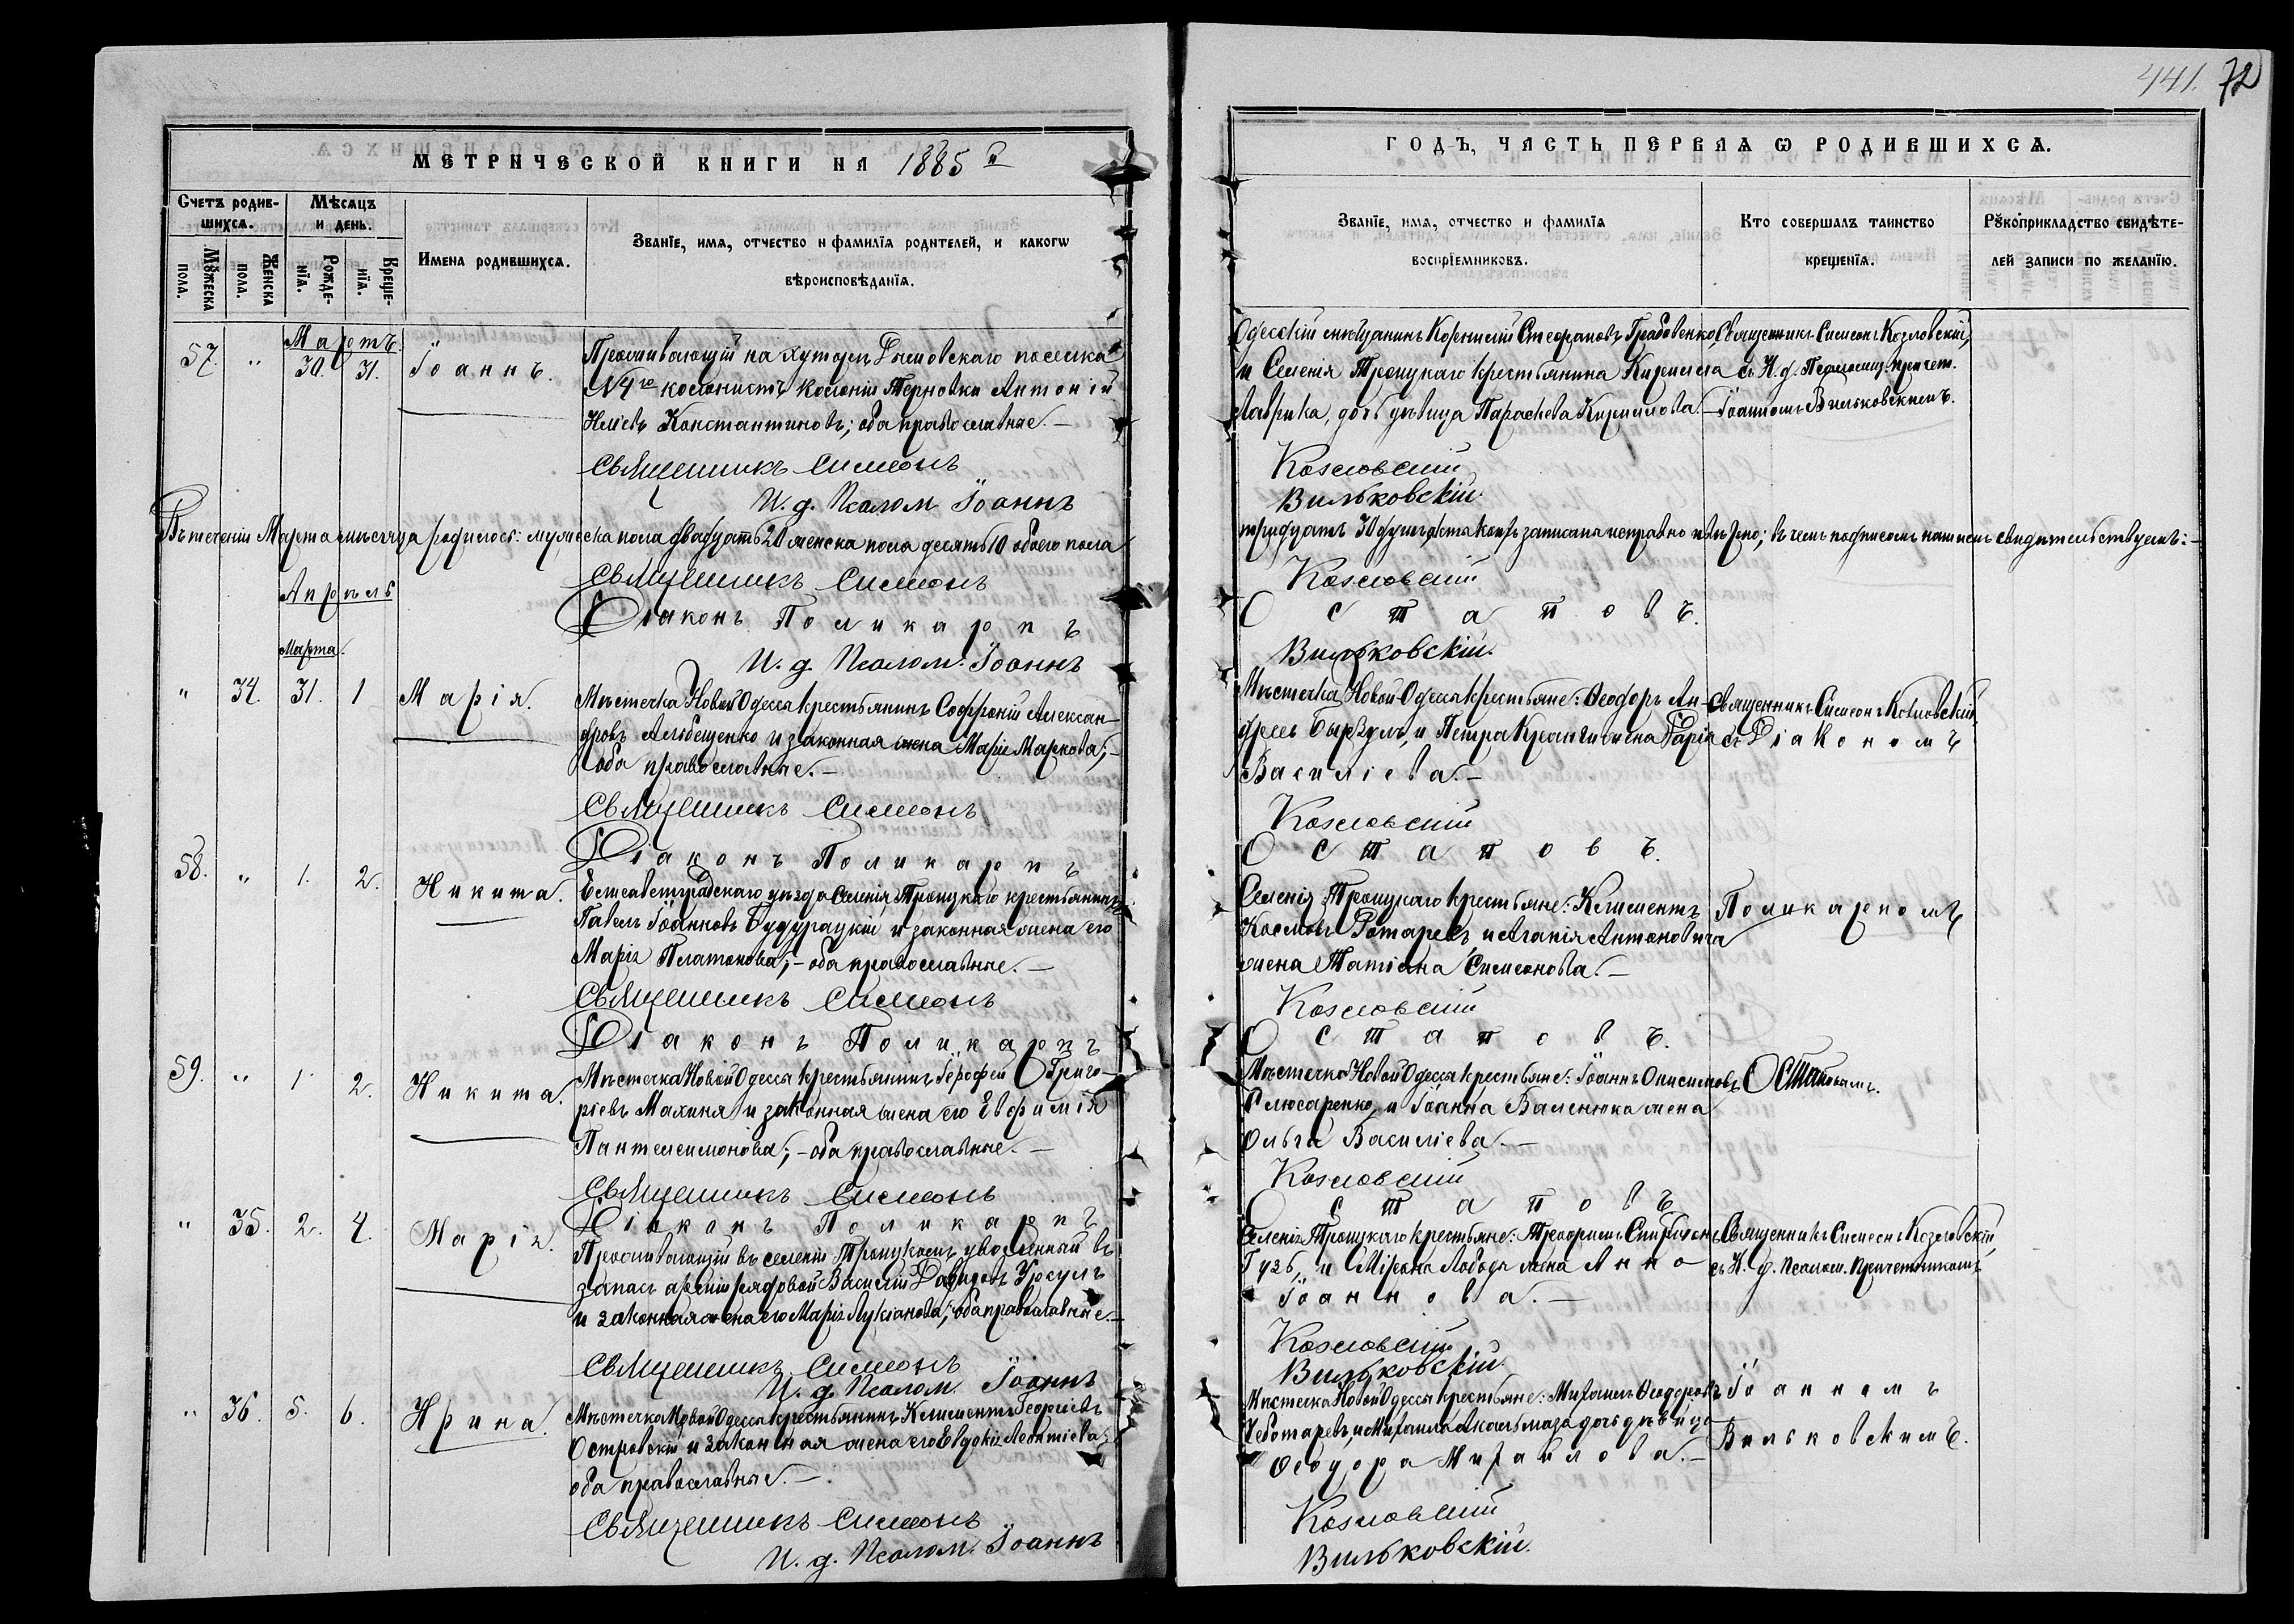 441. 72
МЕТРИЧЕСКОЙ КНИГИ НА 1885 й
ГОДЪ, ЧАСТЬ ПЕРВАЯ Ѡ РОДИВШИХСЯ.
Счетъ родив-
шихся.
Мѣсяцъ
и день.
Мꙋжеска
пола.
Женска
пола.
Рожде-
нїя.
Креще-
нїя.
Имена родившихся.
Званїе, имя, отчество и фамилїя родителей, и какогѡ
вѣроисповѣданїя.
Званїе, имя, отчество и фамилїя
воспрїемниковъ.
Кто совершалъ таинство
крещенїя.
Рꙋкоприкладство свидѣте-
лей записи по желанїю.
Мартъ.
57. " 30. 31. Іоаннъ.
Проживающій на хуторѣ поселка
N 4го колонистъ колоніи Терновки Антоній
Иліевъ Константиновъ; оба православные.—
Священникъ Симеонъ
И. д. Псалом. Іоаннъ
Одесскій мѣщанинъ Корнилій Стефановъ Грабовенко,
и Селенія Троицкаго крестьянина Кирилла
Лаврика, дочь дѣвица Параскева Кириллова.—
Козловскій
Вильковскій.
Священникъ Симеонъ Козловскій,
съ И. д. Псаломщ.
Іоанномъ Вильковскимъ.
Въ теченіи Марта мѣсяца родилось: мужеска пола двадцать 20 женска пола десять 10 обоего пола
тридцать 30 душъ записана исправно и вѣрно; въ чемъ подписомъ нашимъ свидѣтельствуемъ:—
Священникъ Симеонъ
Діаконъ Поликарпъ
И. д. Псалом. Іоаннъ
Козловскій
Остаповъ.
Вильковскій.
Апрѣль
Марта.
" 34. 31. 1 Марія.
Мѣстечка Новой Одессы крестьянинъ Софроній Алексан-
дровъ Альбещенко и законная жена Марія Маркова;—
оба православные.—
Священникъ Симеонъ
Діаконъ Поликарпъ
Мѣстечка Новой Одессы крестьяне: Ѳеодоръ Ан-
дреевъ и Петра жена Дарія
Василіева.—
Козловскій
Остаповъ.
Священникъ Симеонъ Козловскій,
съ Діакономъ
58. " 1. 2. Никита.
Елисаветградскаго уѣзда Селенія Троицкаго крестьянинъ
Павелъ Іоанновъ и законная жена его
Марія Платонова;— оба православные.—
Священникъ Симеонъ
Діаконъ Поликарпъ
Селенія Троицкаго крестьяне: Климентъ
Космовъ Ротаревъ, и Агапія Антоновича
жена Татіана Симеонова.—
Козловскій
Остаповъ.
Поликарпомъ
59. " 1. 2. Никита.
Мѣстечка Новой Одессы крестьянинъ Іерофей Григо-
ріевъ Махиня и законная жена его Евфимія
Пантелеимонова;— оба православные.—
Священникъ Симеонъ
Діаконъ Поликарпъ
Мѣстечка Новой Одессы крестьяне: Іоаннъ Онисимовъ
Слюсаренко, и Іоанна Валенюка жена
Ольга Василіева.—
Козловскій
Остаповъ
Остаповымъ.
" 35. 2. 4. Марія.
Проживающій въ селеніи Троицкомъ уволенный въ
запасъ арміи рядовой Василій Давидовъ Урсулъ
и законная жена его Марія Лукіанова; оба православные.—
Священникъ Симеонъ
И. д. Псалом. Іоаннъ
Селенія Троицкаго крестьяне: Трофимъ
Гузь, и Мирона Лобода жена Анна
Іоаннова.—
Козловскій
Вильковскій.
Священникъ Симеонъ Козловскій,
съ И. д. Псалом. Причетникомъ
" 36. 5. 6. Ирина.
Мѣстечка Новой Одессы крестьянинъ Климентъ Георгіевъ
Островскій и законная жена его Евдокія Леонтіева;
оба православные.—
Священникъ Симеонъ
И. д. Псалом. Іоаннъ
Мѣстечка Новой Одессы крестьяне: Михаилъ Ѳеодоровъ
Чеботаревъ, и Михаила дочь дѣвица
Ѳеодора Михаилова.—
Козловскій
Вильковскій.
Іоанномъ
Вильковскимъ.